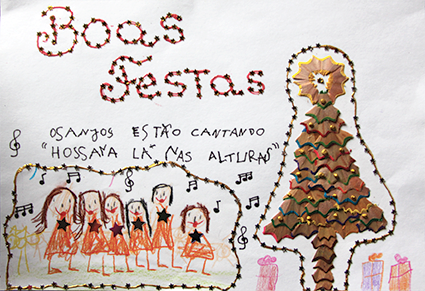 Boas
Festas
OSANJOS ESTÃO CANTANDO
"HOSSANA LÁ NAS ALTURAS"